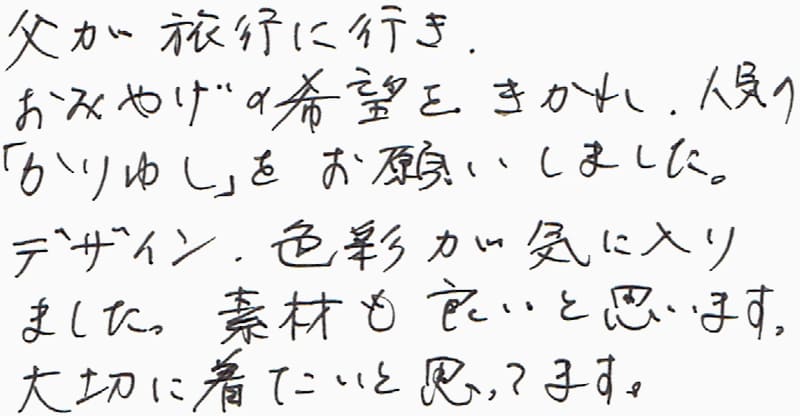 父が旅行に行き、
おみやげの希望をきかれ、人気の
「かりゆし」をお願いしました。
デザイン、色彩が気に入り
ました。素材も良いと思います。
大切に着たいと思ってます。